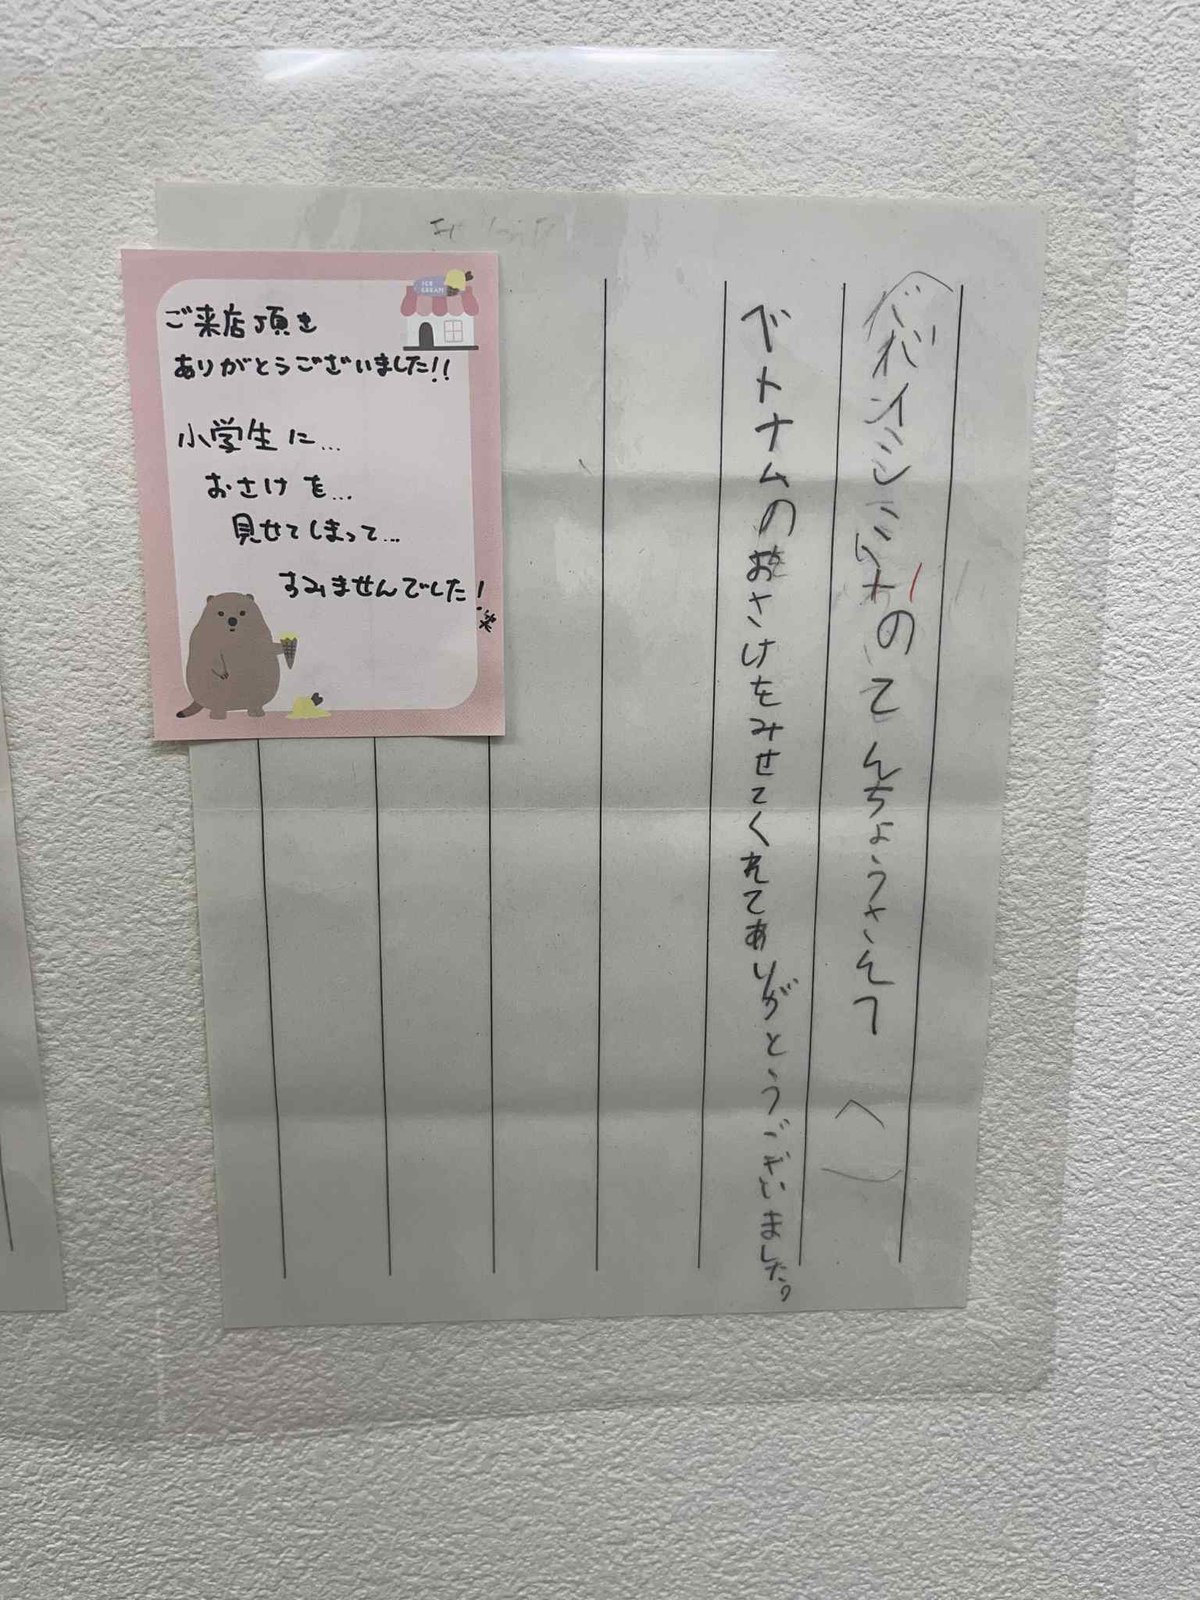 のてんちょうさんへ
ベトナムのおさけをみせてくれてありがとうございました。
ICE
CREAM
ご来店頂き
ありがとうございました!!
小学生に…
おさけを…
見せてしまって…
すみませんでした!